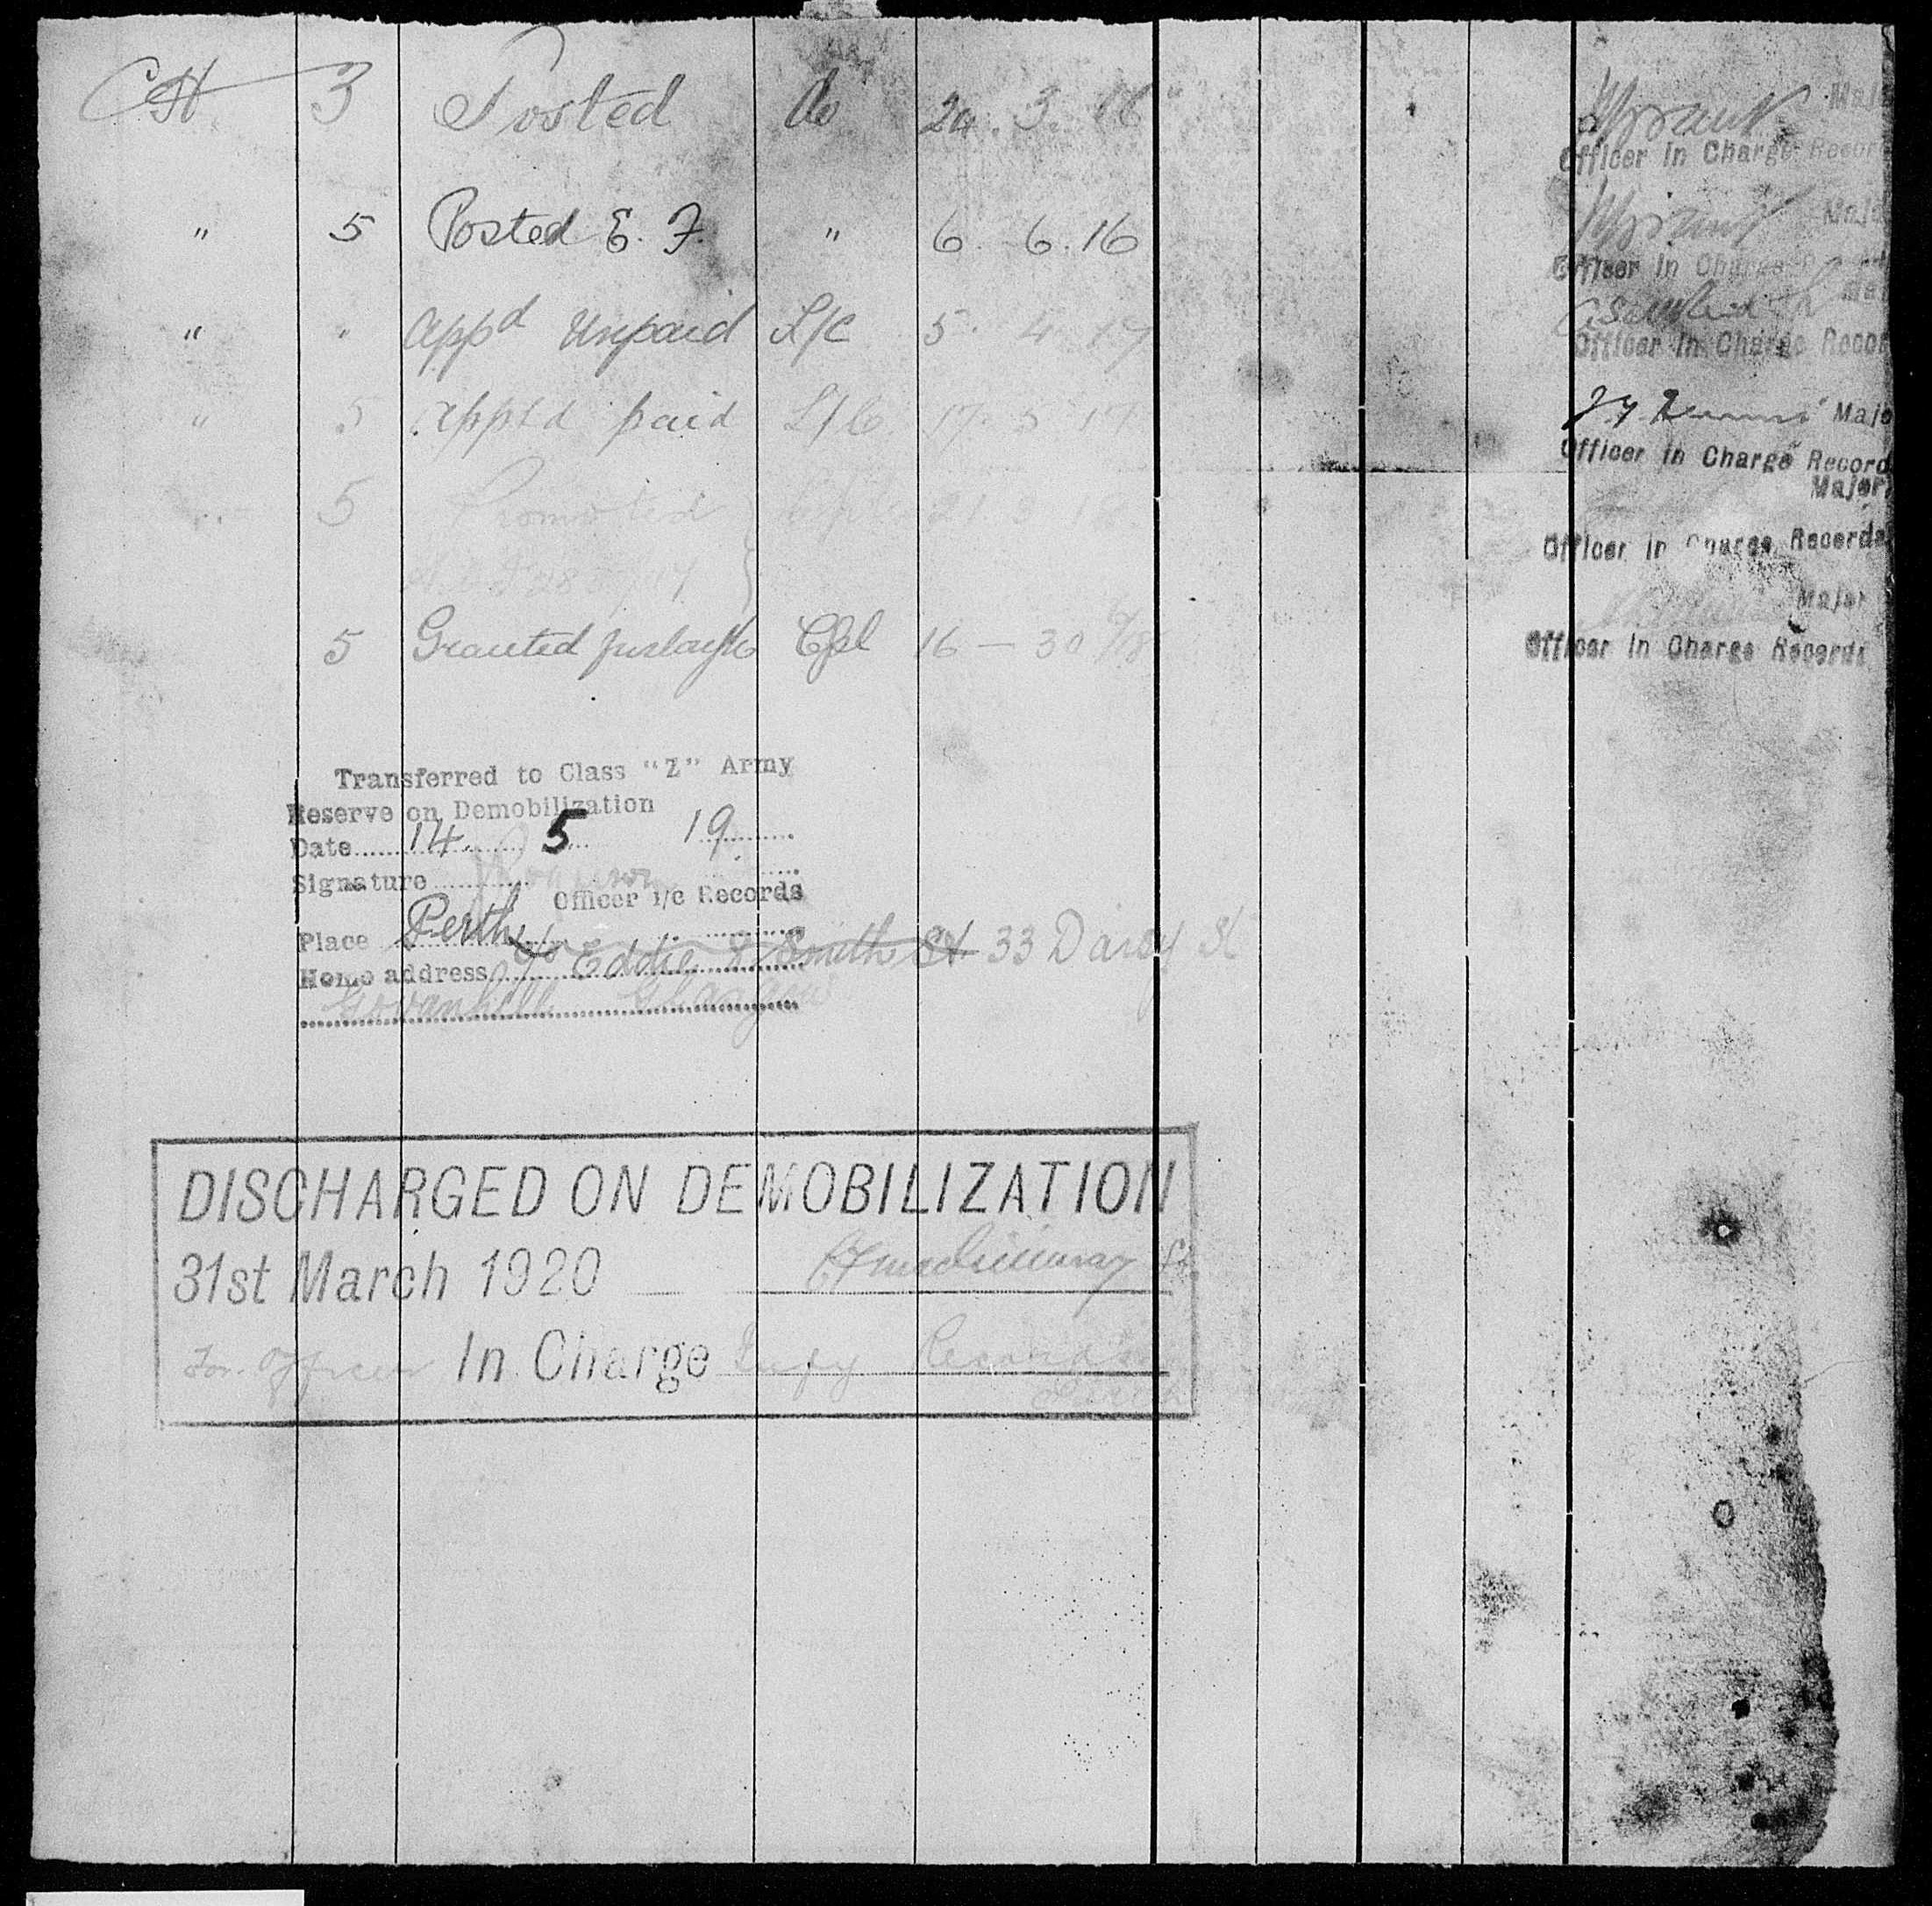 CH 3 Posted do 29. 3. 16 Maj
Officer in Charge Record
" 5 Posted E. F. " 6. 6. 16 Majo
Officer in Charge
" " appd Unpaid L/C 5. 4 17 Maj
Officer in Charge Recor
" 5 appt'd paid L/C 17. 5 17 Majo
Officer in Charge Record
5 Promoted 21. 3. 18 Major
Officer in Charge Records
Major
5 Granted furlough Cpl 16 — 30
Officer in Charge Records
Transferred to Class "Z" Army
Reserve on Demobilization
Date 14 5 19
Signature
Officer i/c Records
Place Perth
Home address c/o Eddie South St 33 St
Govanhill Glasgow
DISCHARGED ON DEMOBILIZATION
31st March 1920
For Officer In Charge Infy Records
Perth